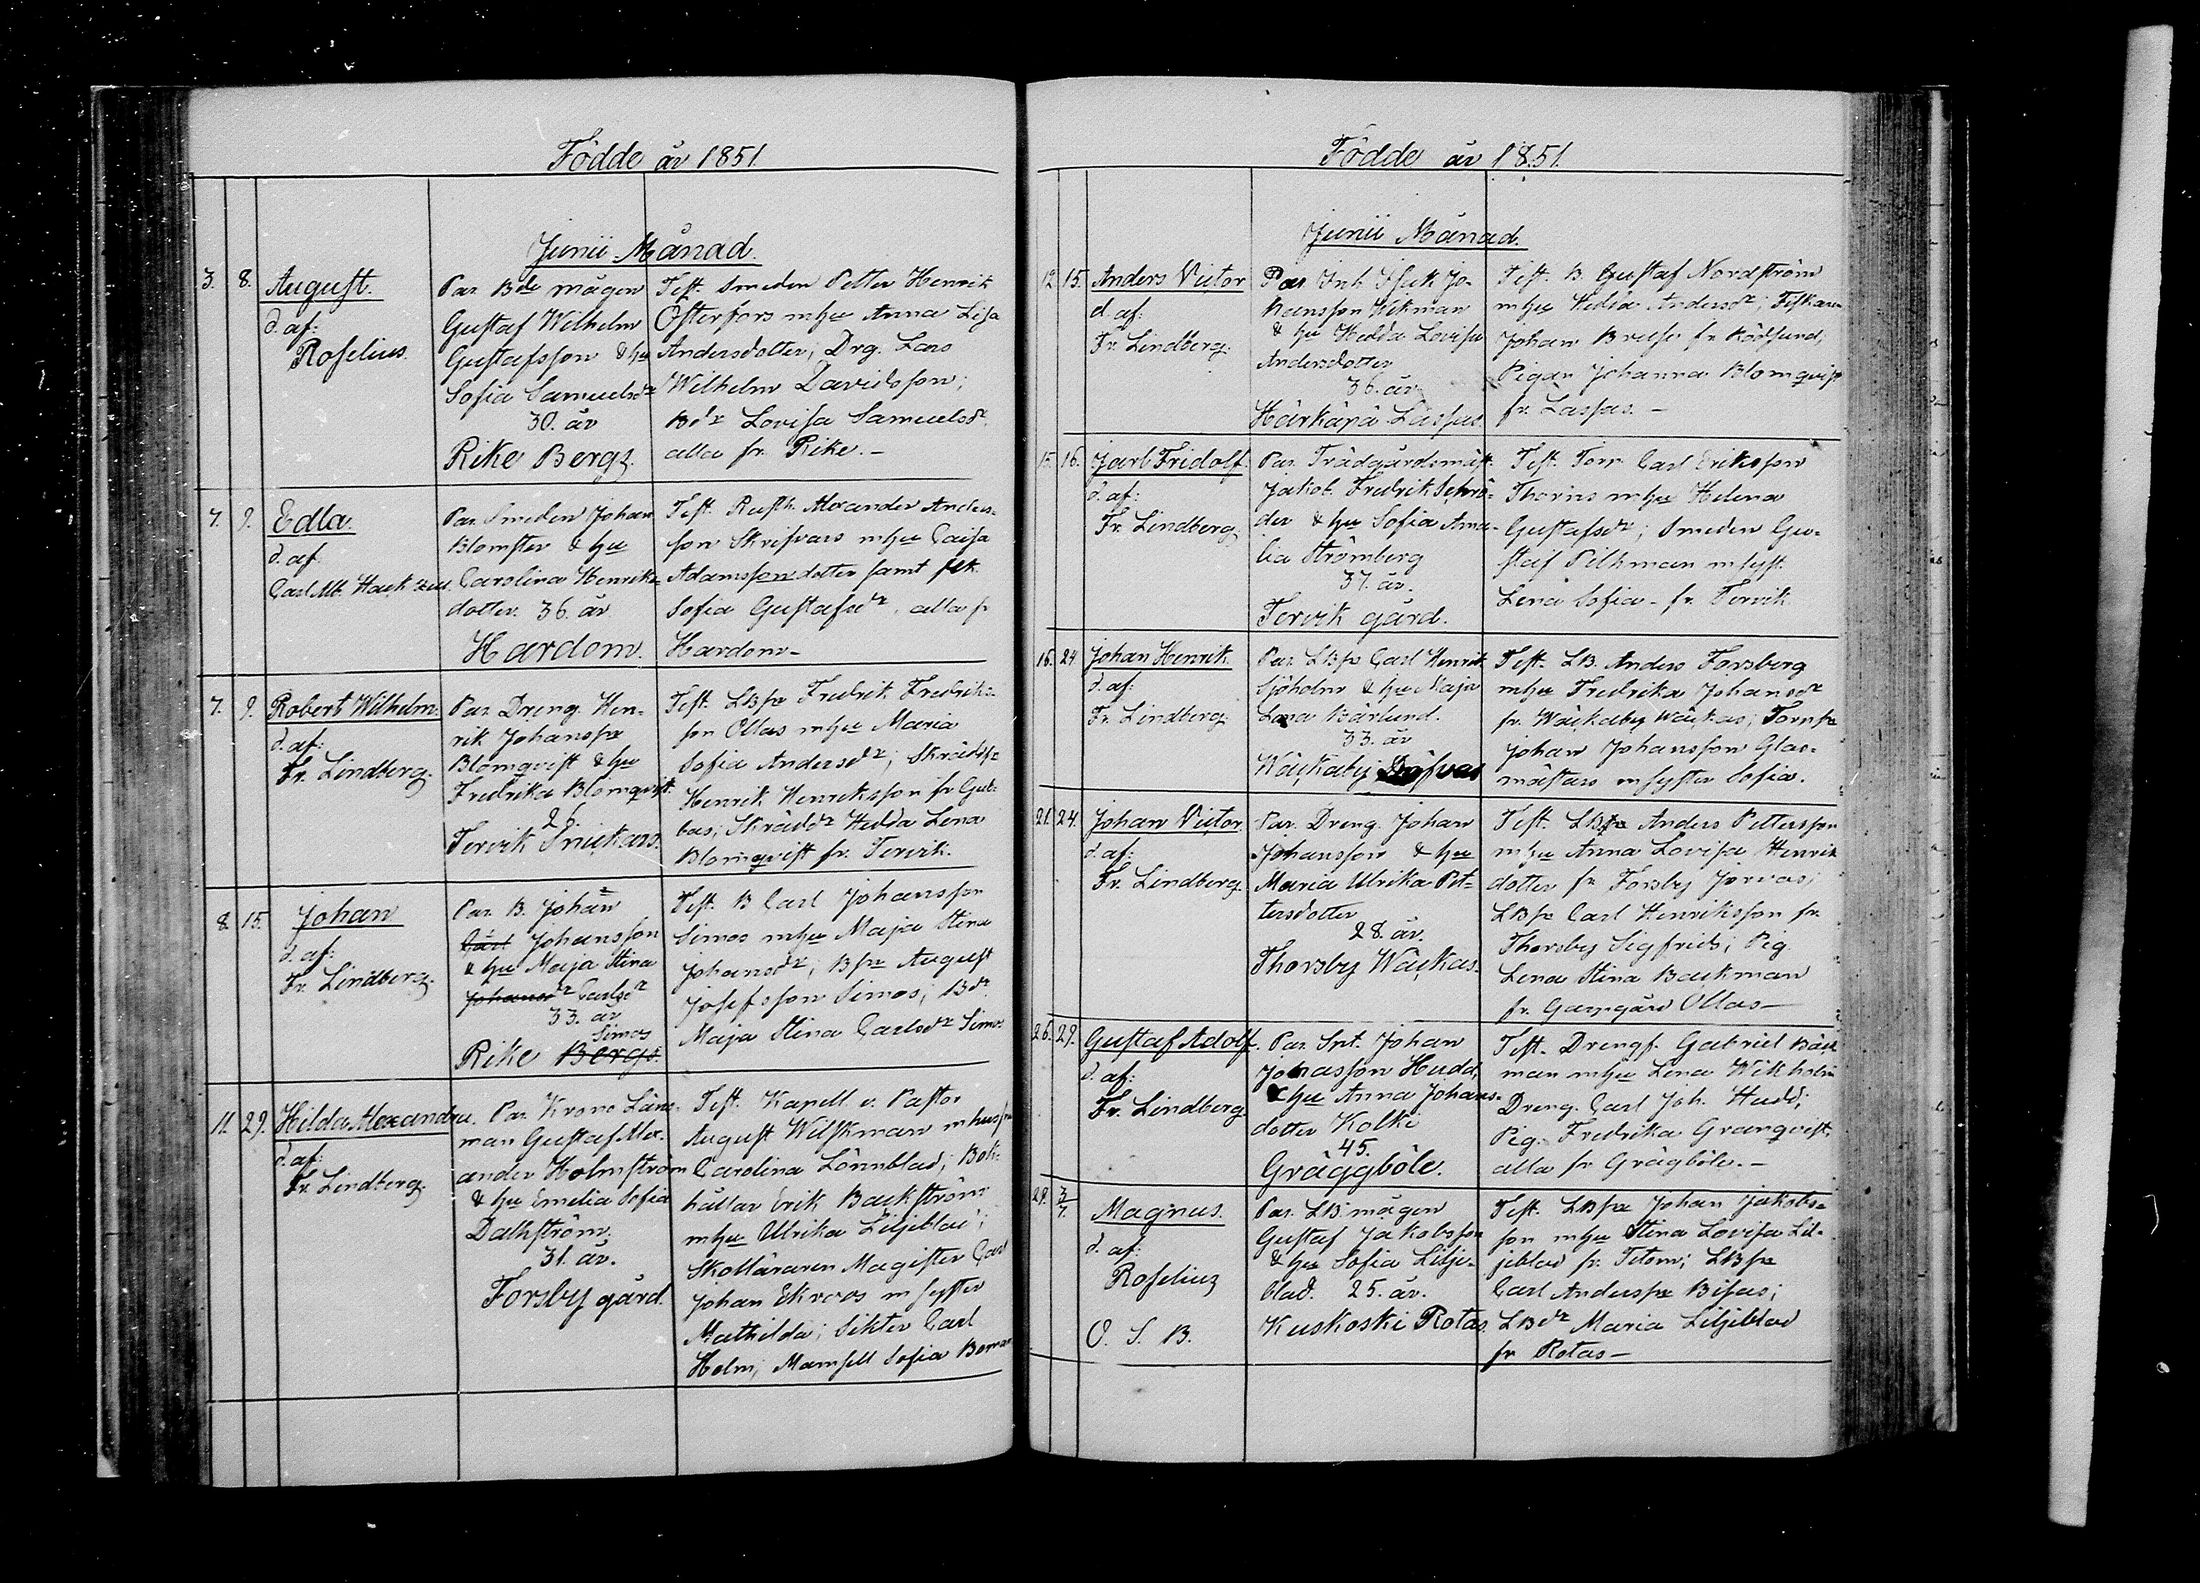 Födde år 1851
Junii Månad.
3. 8. August.
d. af:
Roselius.
Par. Bde mågen
Gustaf Wilhelm
Gustafsson & hu
Sofia Samuelsdr
30. år
Rike Bergs.
Test. Smeden Petter Henrik
Österfors m hu Anna Lisa
Andersdotter; Drg. Lars
Wilhelm Davidsson;
Bdr Lovisa Samuelsdr.
alla fr. Rike.-
7. 9. Edla.
d. af.
Carl Mb.
Par. Smeden Johan
Blomster & hu
Carolina Henriks-
dotter. 36. år.
Hardom.
Test. Rusth. Alexander Anders-
son Skrifvars m hu Caisa
Adamssondotter samt
Sofia Gustafsdr, alla fr
Hardom-
7. 9. Robert Wilhelm.
d. af:
Fr. Lindberg.
Par. Dreng. Hen-
rik Johanss
Blomqvist & hu
Fredrika Blomqvist.
26.
Tervik Snickars.
Test. LBss Fredrik Fredriks-
son Ollas m hu Maria
Sofia Andersdr;
Henrik Henriksson fr Gub-
bas; Skräddr Hedda Lena
Blomqvist fr. Tervik.
8. 15. Johan
d. af:
Fr. Lindberg.
Par. B. Johan
Carl Johansson
& hu Maja Stina
Johansdr Carlsdr
33. år
Simos
Rike Bergs.
Test. B Carl Johansson
Simos m hu Maja Stina
Johansdr; Bss August
Josefsson Simos; Bdr.
Maja Stina Carlsdr Simos.
11. 29. Hilda Alexandra.
d. af:
Fr. Lindberg.
Par. Krono Läns-
man Gustaf Alex-
ander Holmström
& hu Emelia Sofia
Dahlström.
31. år.
Forsby gård.
Test. Kapell. o. Pastor
August Wilskman m hustru
Carolina Lönnblad; Bok-
hållar Erik Backström
m hu Ulrika Liljeblad;
Skolläraren Magister Carl
Johan Ekroos m syster
Mathilda; Sikter Carl
Holm; Mamsell Sofia Boman
Födde år 1851.
Junii Månad.
12. 15. Anders Victor
d. af:
Fr. Lindberg.
Par Inh. Isak Jo-
hansson Wikman
& hu Hedda Lovisa
Andersdotter
36. år
Härkäpä Laspas.
Test. B. Gustaf Nordström
m hu Hedda Andersdr; Fiskaren
Johan fr. Rödsund;
Pigan Johanna Blomqvist
fr. Laspas. -
15. 16. Jarl Fridolf.
d. af:
Fr. Lindberg.
Par. Trädgårdsmäst.
Jakob. Fredrik Schrö-
der & hu Sofia Ama-
lia Strömberg
37. år.
Tervik gård.
Test. Torp. Carl Eriksson
Thorns m hu Helena
Gustafsdr; Smeden Gu-
staf Pilhman m syst.
Lena Sofia- fr. Tervik.
16. 24. Johan Henrik
d. af:
Fr. Lindberg.
Par. LBss Carl Henrik
Sjöholm & hu Maja
Lena Bärlund.
33. år
Wäckaby Döfvas
Test. LB. Anders Forsberg
m hu Fredrika Johansdr
fr. Wäckaby Wäckas; Tornss
Johan Johansson Glas-
mästars m syster Sofia.
21. 24. Johan Victor.
d. af:
Fr. Lindberg.
Par. Dreng. Johan
Johansson & hu
Maria Ulrika Pet-
tersdotter
28. år.
Thorsby Wäckas.
Test. LBss Anders Pettersson
m hu Anna Lovisa Henriks
dotter fr Forsby Jorvas;
LBss Carl Henriksson fr.
Thorsby Sigfrids; Pig.
Lena Stina Backman
fr. Gamgård Ollas-
26. 29. Gustaf Adolf.
d. af:
Fr. Lindberg.
Par. Snt. Johan
Johansson Hudd,
& hu Anna Johans-
dotter Kolki
45.
Gräggböle.
Test. Drengs. Gabriel Back
man m hu Lena Wikholm
Dreng. Carl Joh. Hudd;
Pig. Fredrika Granqvist,
alla fr Grägböle.-
29. 3/7. Magnus.
d. af:
Roselius
O. S. B.
Par. LB. mågen
Gustaf Jakobsson
& hu Sofia Lilje-
blad. 25. år.
Kuskoski Rotas.
Test. LBss Johan Jakobs-
son m hu Stina Lovisa Lil-
jeblad fr. Tetom; LBss
Carl Anderss Bisas;
LBdr Maria Liljeblad
fr Rotas-